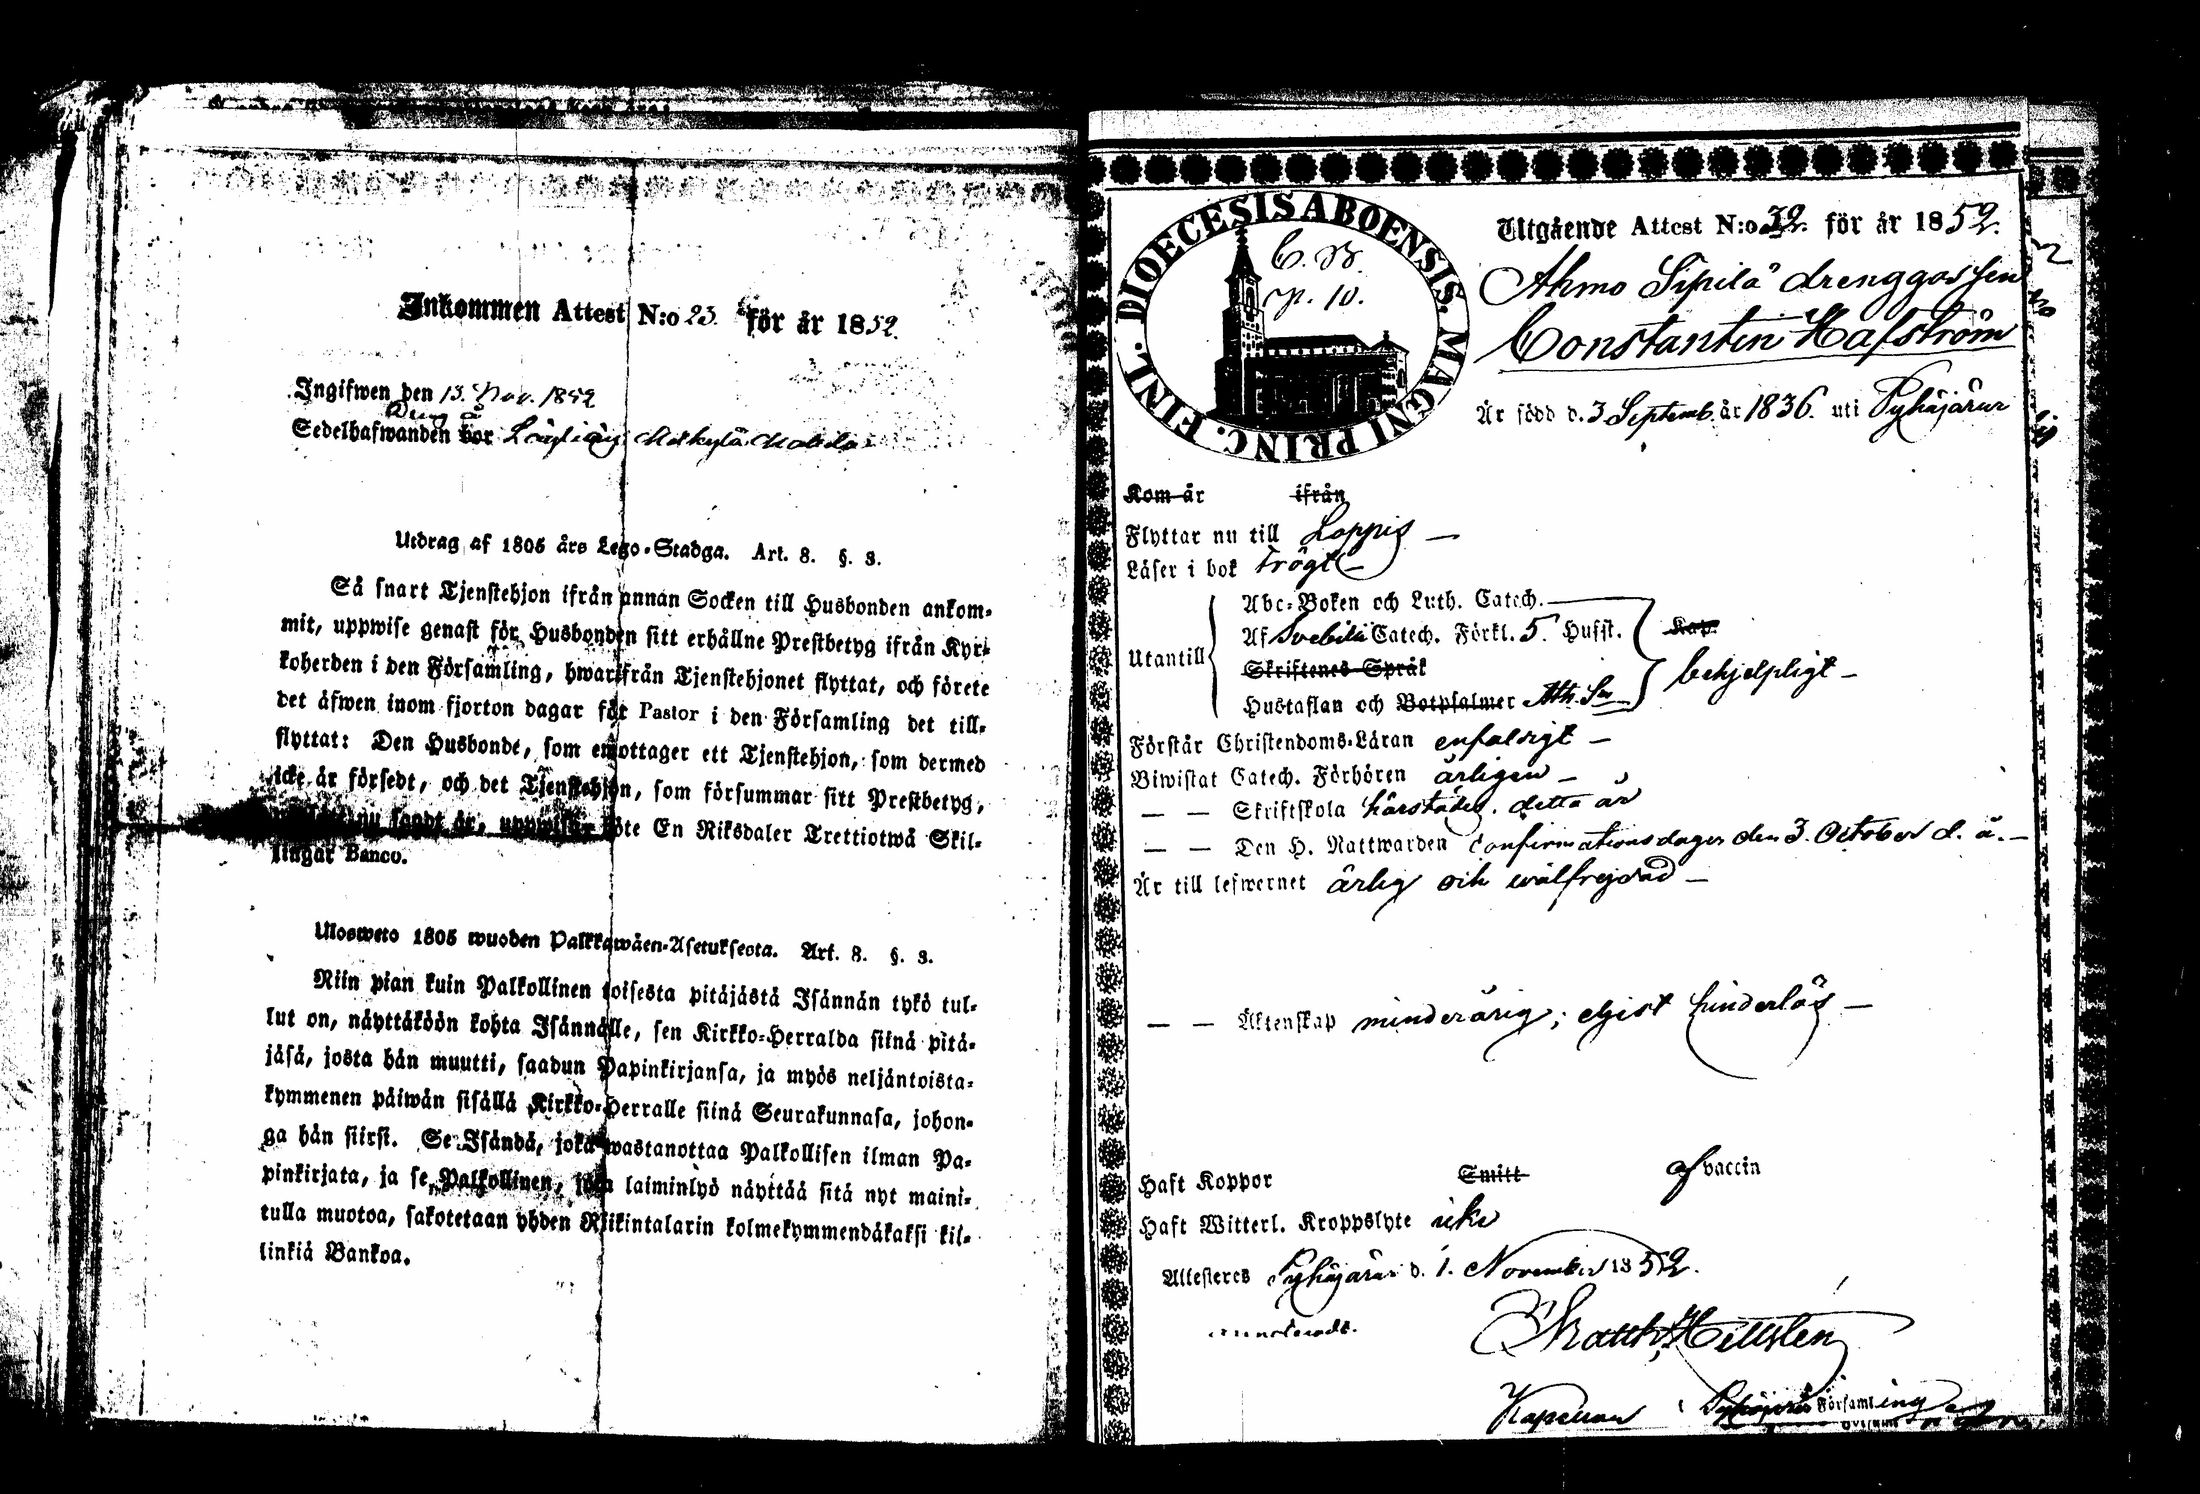 Inkommen Attest N:o 23. för år 1852.
Ingifwen den 13. Nov. 1852
Dreng å
Sedelhafwanden bor
Utdrag af 1805 års Lego-Stadga. Art. 8. §. 3.
Så snart Tjenstehjon ifrån annan Socken till Husbonden ankom-
mit, uppwise genast för Husbonden sitt erhållne Prestbetyg ifrån Kyr-
koherden i den Församling, hwarifrån Tjenstehjonet flyttat, och förete
det äfwen inom fjorton dagar för Pastor i den Församling det till-
flyttat: Den Husbonde, som emottager ett Tjenstehjon, som dermed
icke är försedt, och det Tjenstehjon, som försummar sitt Prestbetyg,
nu sagdt är, uppwisa, böte En Riksdaler Trettiotwå Skil-
lingar Banco.
Ulosweto 1805 wuoden Palkkawäen-Asetuksesta. Art. 8. §. 3.
Niin pian kuin Palkollinen toisesta pitäjästä Isännän tykö tul-
lut on, näyttäköön kohta Isännälle, sen Kirkko-Herralda siinä pitä-
jäsä, josta hän muutti, saadun Papinkirjansa, ja myös neljäntoista-
kymmenen päiwän sisällä Kirkko-Herralle siinä Seurakunnasa, johon-
ga hän siirsi. Se Isändä, joka wastanottaa Palkollisen ilman Pa-
pinkirjata, ja se Palkollinen, joka laiminlyö näyttää sitä nyt maini-
tulla muotoa, sakotetaan yhden Riikintalarin kolmekymmendäkaksi kil-
linkiä Bankoa.
DIOECESIS ABOENSIS. MAGNI PRINC. FINL.
C. B.
p. 10.
Utgående Attest N:o 32. för år 1852.
Ahmo Sipilä drenggossen
Constantin Hafström
Är född d. 3 Septemb. år 1836. uti Pyhäjärvi
Kom år ifrån
Flyttar nu till Loppis —
Läser i bok trögt —
Utantill
Abc-Boken och Luth. Catech.
Af Svebilii Catech. Förkl. 5. Husst.
Kap.
Skriftenes Språk
behjelpligt —
Hustaflan och Botpsalmer Ath. Sn
Förstår Christendoms-Läran enfaldigt —
Biwistat Catech. Förhören årligen —
— — Skriftskola härstädes detta år
— — Den H. Nattwarden confirmationsdagen den 3. October d. å. —
Är till lefwernet ärlig och wälfrejdad —
— — Äktenskap minderårig; eljest hinderlös —
Haft Koppor Smitt af vaccin
Haft Witterl. Kroppslyte icke
Attesteres Pyhäjärvi d. 1. November 1852.
Matth. Hellsten
Kapellan i Pyhäjärvi Församling